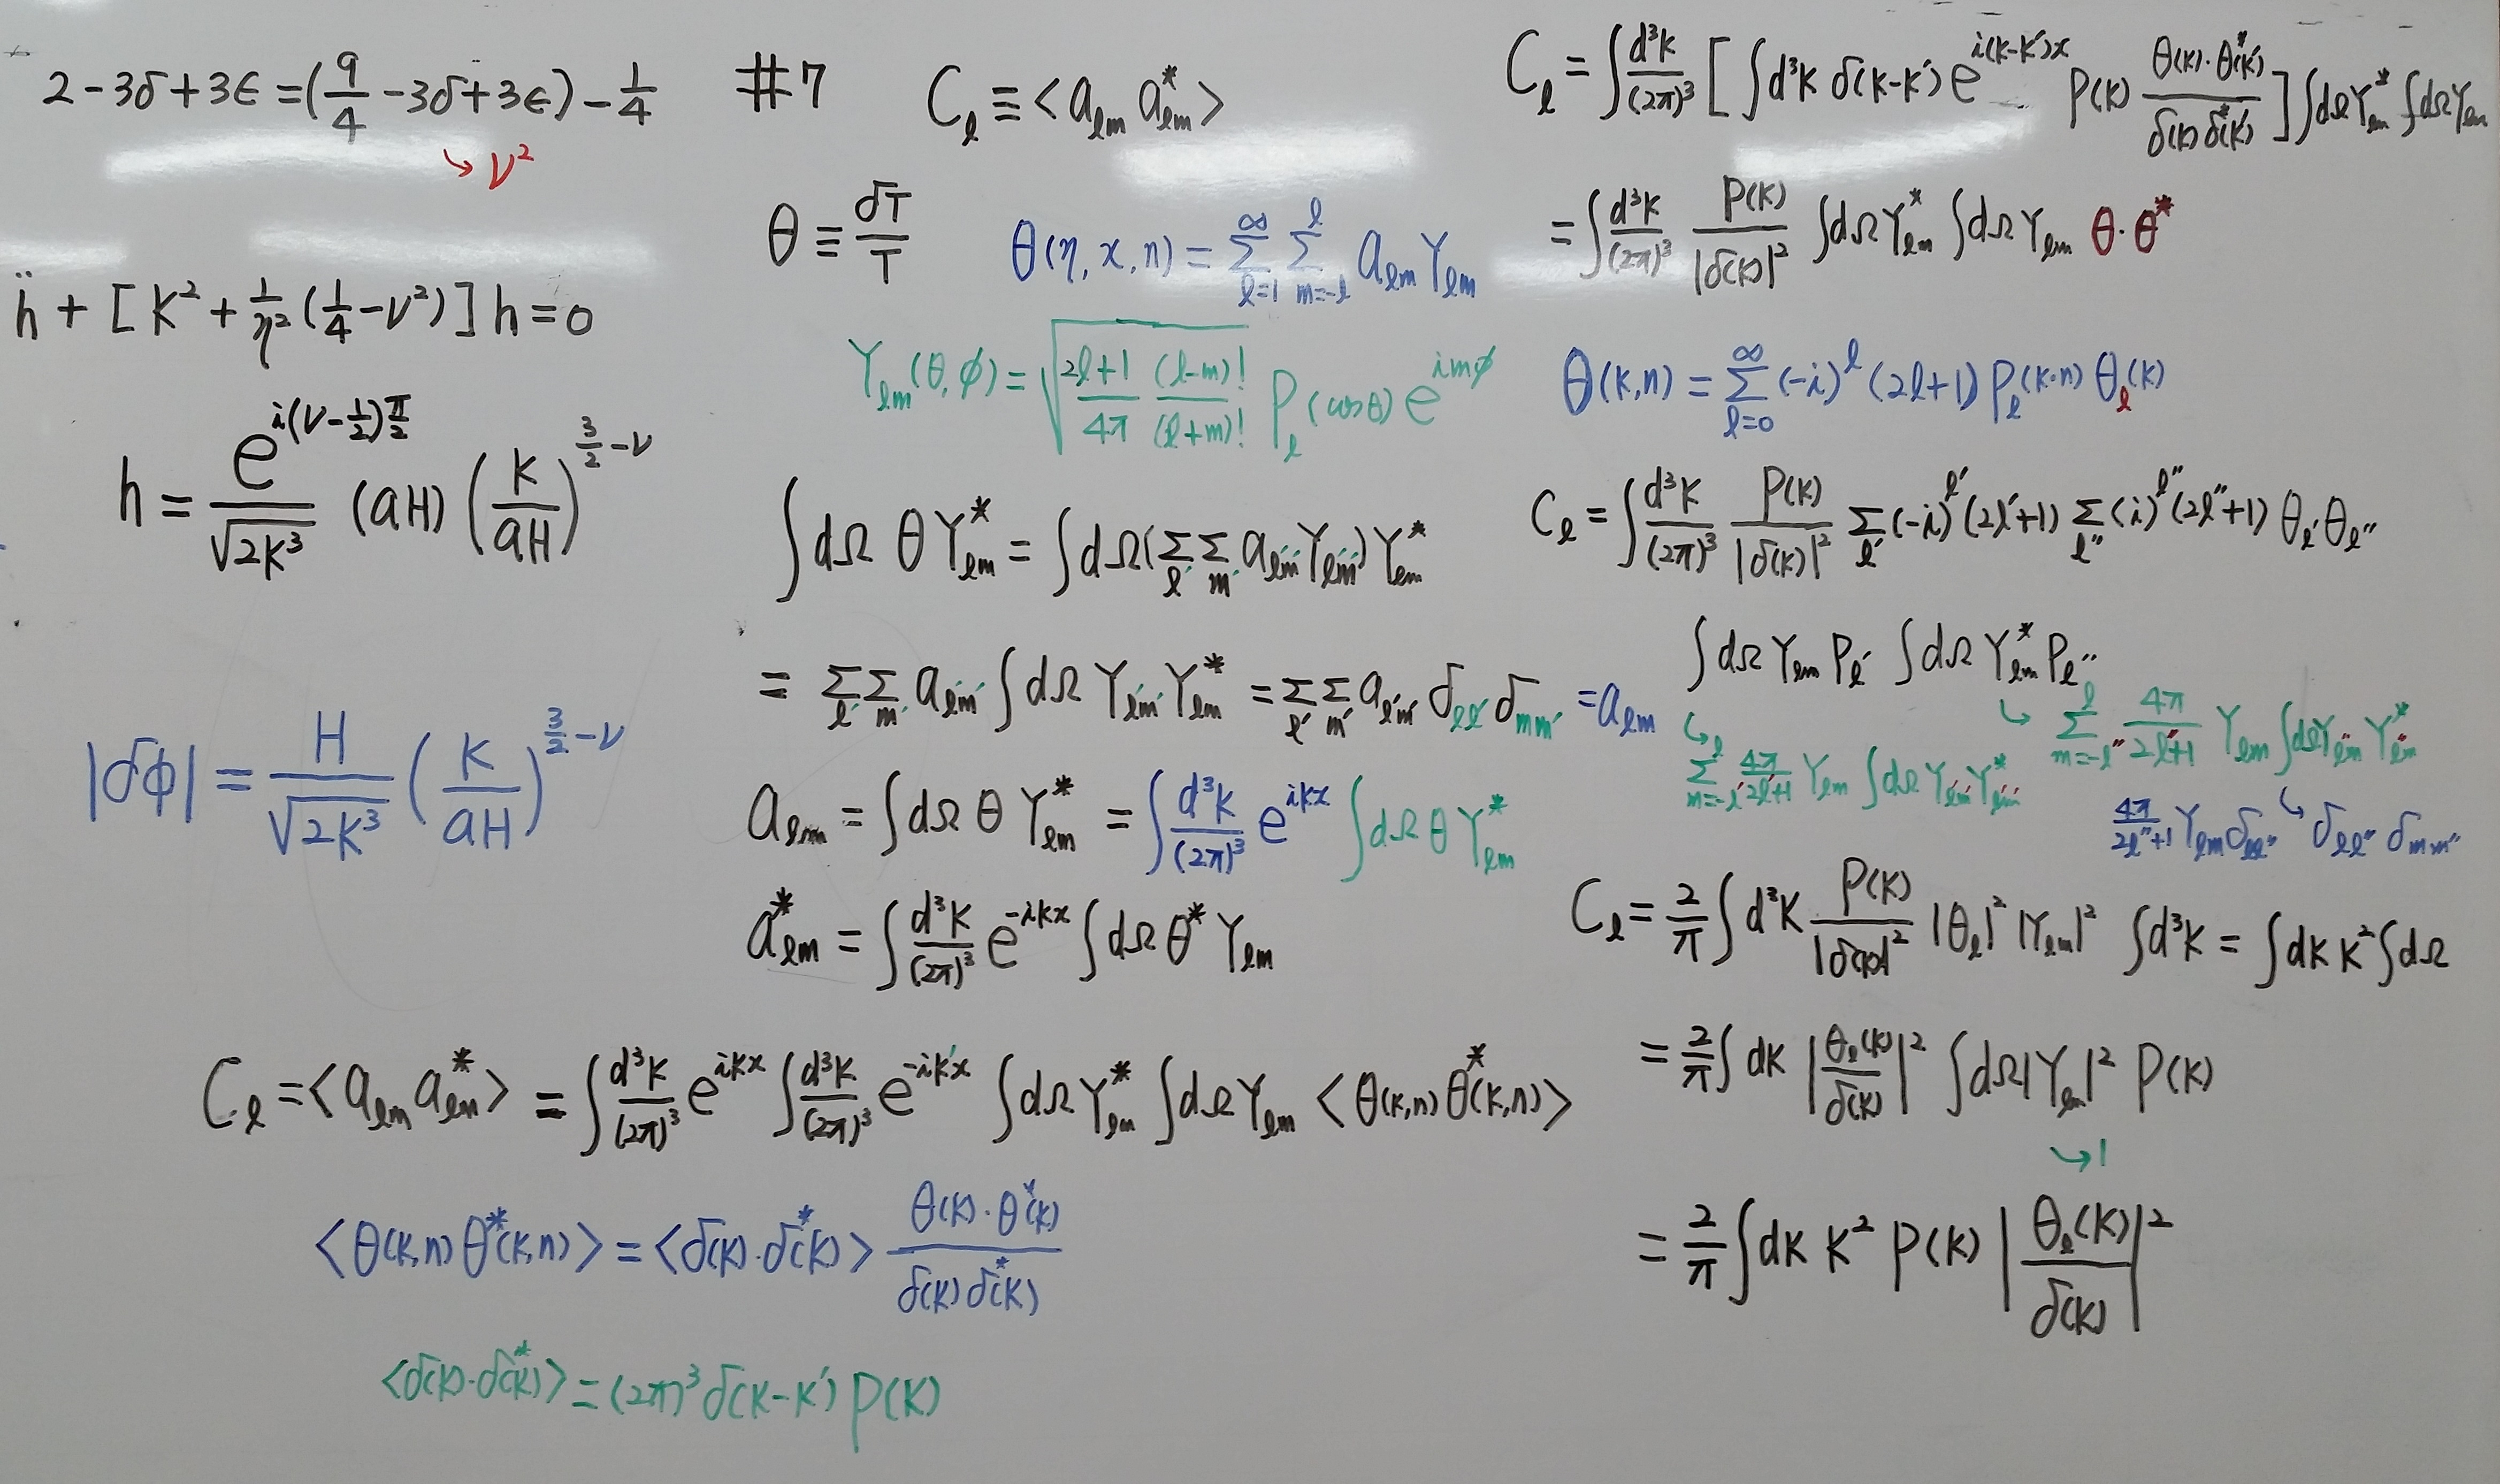 2-3δ+3ϵ=(9/4-3δ+3ϵ)-1/4
↳ ν²
ḧ+[K²+1/η²(1/4-ν²)]h=0
h=e^{i(ν-1/2)π/2}/√2K³ (aH)(K/aH)^{3/2-ν}
|δϕ|=H/√2K³ (K/aH)^{3/2-ν}
#7
C_ℓ≡<a_ℓm a*_ℓm>
θ≡δT/T
θ(η,x,n)=Σ_{ℓ=1}^∞ Σ_{m=-ℓ}^ℓ a_ℓm Y_ℓm
Y_ℓm(θ,ϕ)=√(2ℓ+1/4π (ℓ-m)!/(ℓ+m)!) P_ℓ(cosθ)e^{imϕ}
∫dΩ θY*_ℓm=∫dΩ(Σ_ℓ' Σ_m' a_ℓ'm' Y_ℓ'm')Y*_ℓm
=Σ_ℓ' Σ_m' a_ℓ'm' ∫dΩ Y_ℓ'm' Y*_ℓm=Σ_ℓ' Σ_m' a_ℓ'm' δ_ℓℓ' δ_mm' =a_ℓm
a_ℓm=∫dΩ θ Y*_ℓm=∫d³K/(2π)³ e^{iKx} ∫dΩ θ Y*_ℓm
a*_ℓm=∫d³K/(2π)³ e^{-iKx} ∫dΩ θ* Y_ℓm
C_ℓ=<a_ℓm a*_ℓm>=∫d³K/(2π)³ e^{iKx} ∫d³K/(2π)³ e^{-iK'x} ∫dΩY*_ℓm ∫dΩY_ℓm <θ(K,n)θ*(K,n)>
<θ(K,n)θ*(K,n)>=<δ(K)·δ*(K)> θ(K)·θ*(K)/δ(K)δ*(K)
<δ(K)·δ*(K)>=(2π)³δ(K-K')P(K)
C_ℓ=∫d³K/(2π)³[∫d³K δ(K-K')e^{i(K-K')x} P(K) θ(K)·θ*(K')/δ(K)δ*(K')]∫dΩY*_ℓm ∫dΩY_ℓm
=∫d³K/(2π)³ P(K)/|δ(K)|² ∫dΩY*_ℓm ∫dΩY_ℓm θ·θ*
θ(K,n)=Σ_{ℓ=0}^∞(-i)^ℓ(2ℓ+1)P_ℓ(K·n)θ_ℓ(K)
C_ℓ=∫d³K/(2π)³ P(K)/|δ(K)|² Σ_ℓ'(-i)^ℓ'(2ℓ'+1)Σ_ℓ''(i)^ℓ''(2ℓ''+1)θ_ℓ'θ_ℓ''
∫dΩY_ℓm P_ℓ' ∫dΩY*_ℓm P_ℓ''
↳ Σ_{m=-ℓ'}^ℓ 4π/2ℓ'+1 Y_ℓm ∫dΩY_ℓ'm' Y*_ℓ'm'
↳ Σ_{m=-ℓ''}^ℓ 4π/2ℓ''+1 Y_ℓm ∫dΩY_ℓm Y*_ℓm
4π/2ℓ''+1 Y_ℓm δ_ℓℓ'' ↳ δ_ℓℓ'' δ_mm''
C_ℓ=2/π∫d³K P(K)/|δ(K)|² |θ_ℓ|²|Y_ℓm|² ∫d³K=∫dK K²∫dΩ
=2/π∫dK |θ_ℓ(K)/δ(K)|² ∫dΩ|Y_ℓm|² P(K)
↳1
=2/π∫dK K² P(K)|θ_ℓ(K)/δ(K)|²